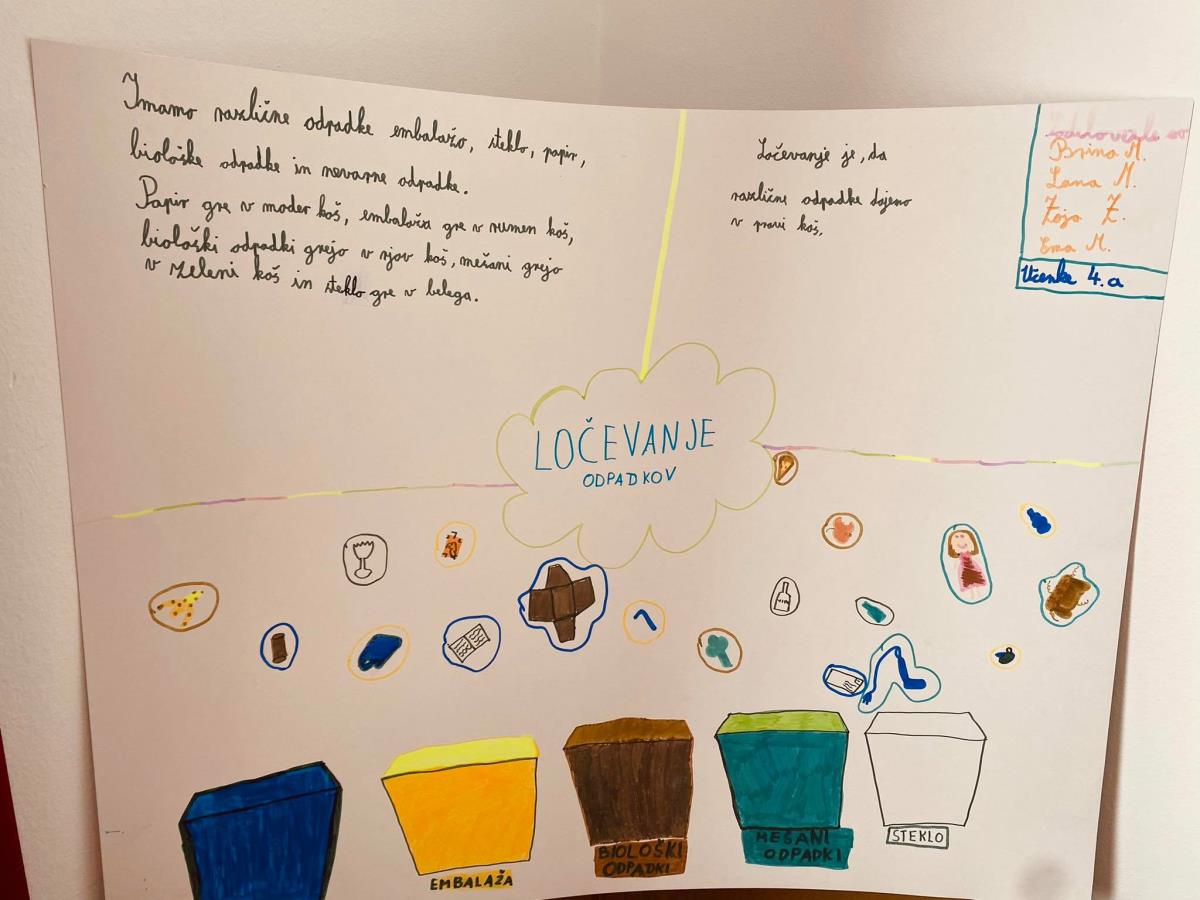 Imamo različne odpadke embalažo, steklo, papir,
biološke odpadke in nevarne odpadke.
Papir gre v moder koš, embalaža gre v rumen koš,
biološki odpadki grejo v rjov koš, mešani grejo
v zeleni koš in steklo gre v belega.
Ločevanje je, da
različne odpadke dajemo
v pravi koš.
Brina M.
Lana M.
Zoja Z.
Ema M.
Učenke 4. a
LOČEVANJE
ODPADKOV
EMBALAŽA
BIOLOŠKI
ODPADKI
MEŠANI
ODPADKI
STEKLO